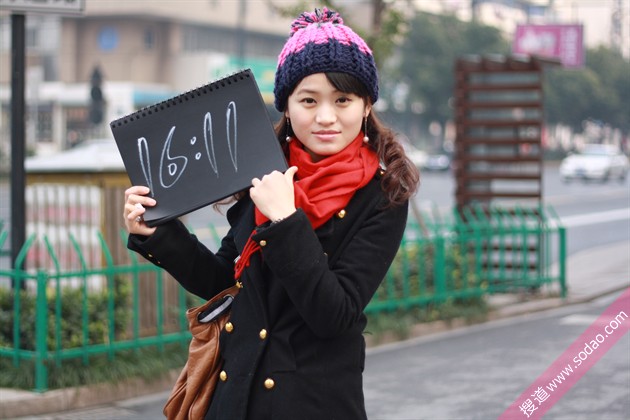 16:11
搜道www.sodao.com